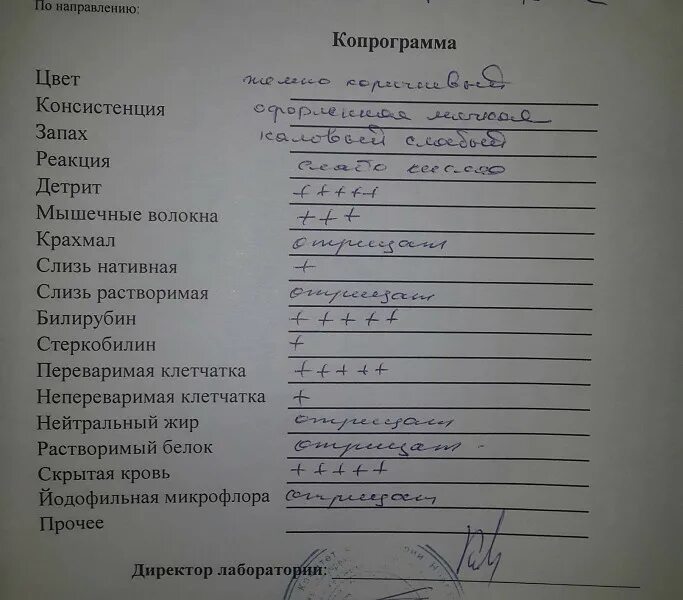 По направлению:
Копрограмма
Цвет темно коричневый
Консистенция оформленная мягкая
Запах каловый слабый
Реакция слабо кислая
Детрит +++++
Мышечные волокна +++
Крахмал отрицат
Слизь нативная +
Слизь растворимая отрицат
Билирубин +++++
Стеркобилин +
Переваримая клетчатка +++++
Непереваримая клетчатка +
Нейтральный жир отрицат
Растворимый белок отрицат
Скрытая кровь +++++
Йодофильная микрофлора отрицат
Прочее
Директор лаборатории: